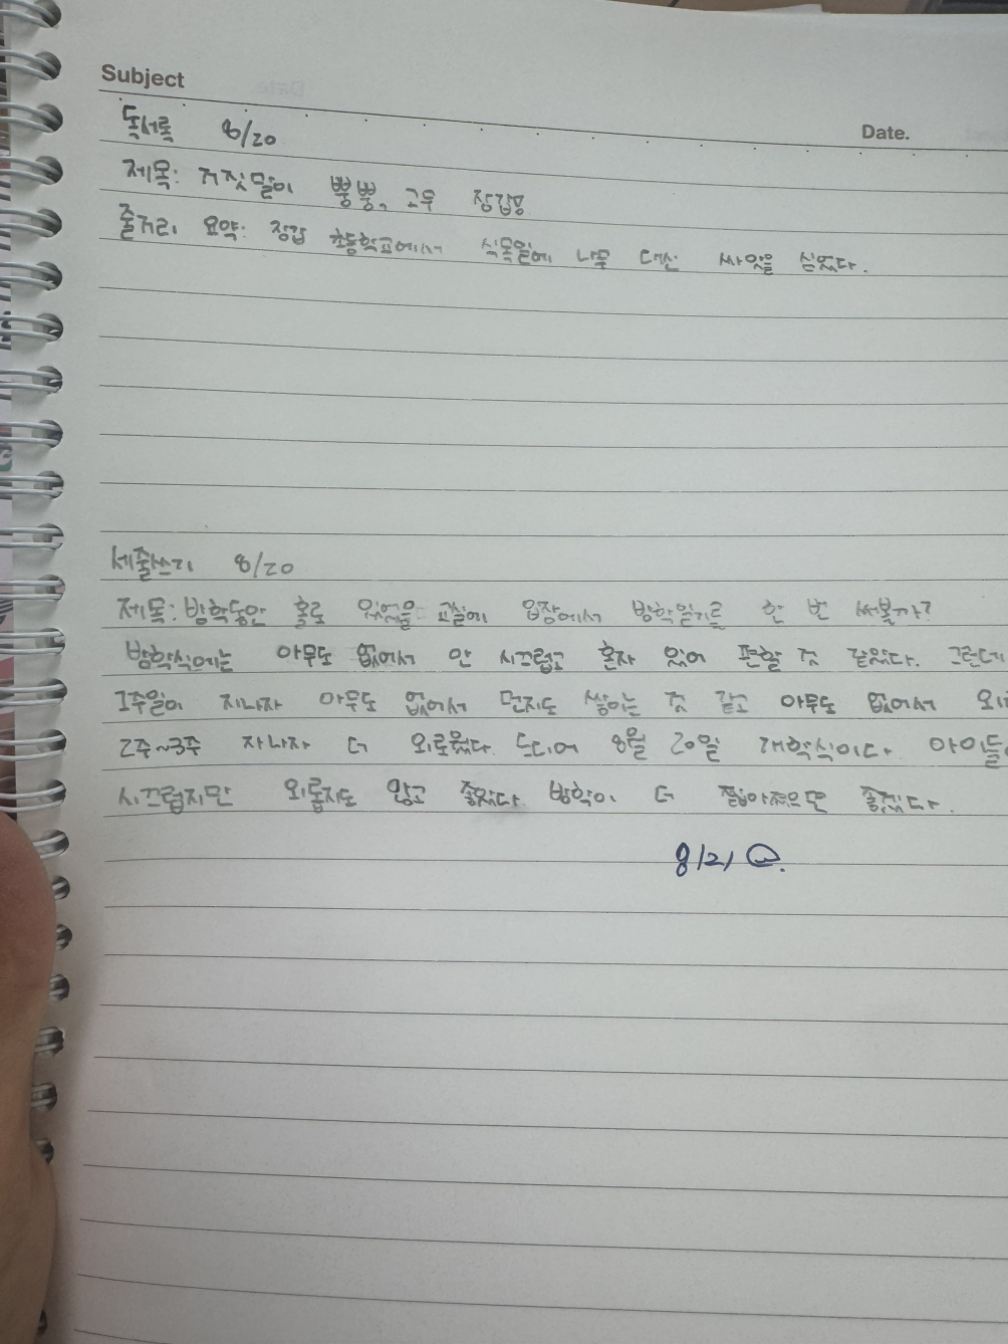 Subject
Date.
독서록 8/20
제목: 거짓말이 뿡뿡, 고무 장갑뿅
줄거리 요약: 장갑 초등학교에서 식목일에 나무 대신 싸앗을 심었다.
세줄쓰기 8/20
제목: 방학동안 홀로 있었을 교실에 입장에서 방학일기를 한 번 써볼까?
방학식에는 아무도 없에서 안 시끄럽고 혼자 있어 편할 것 같았다. 그런데
1주일이 지나자 아무도 없어서 먼지도 쌓이는 것 같고 아무도 없어서
2주~3주 자나자 더 외로웠다. 드디어 8월 20일 개학식이다 아이들
시끄럽지만 외롭지도 않고 좋았다. 방학이 더 짧아졌으면 좋겠다.
8/21